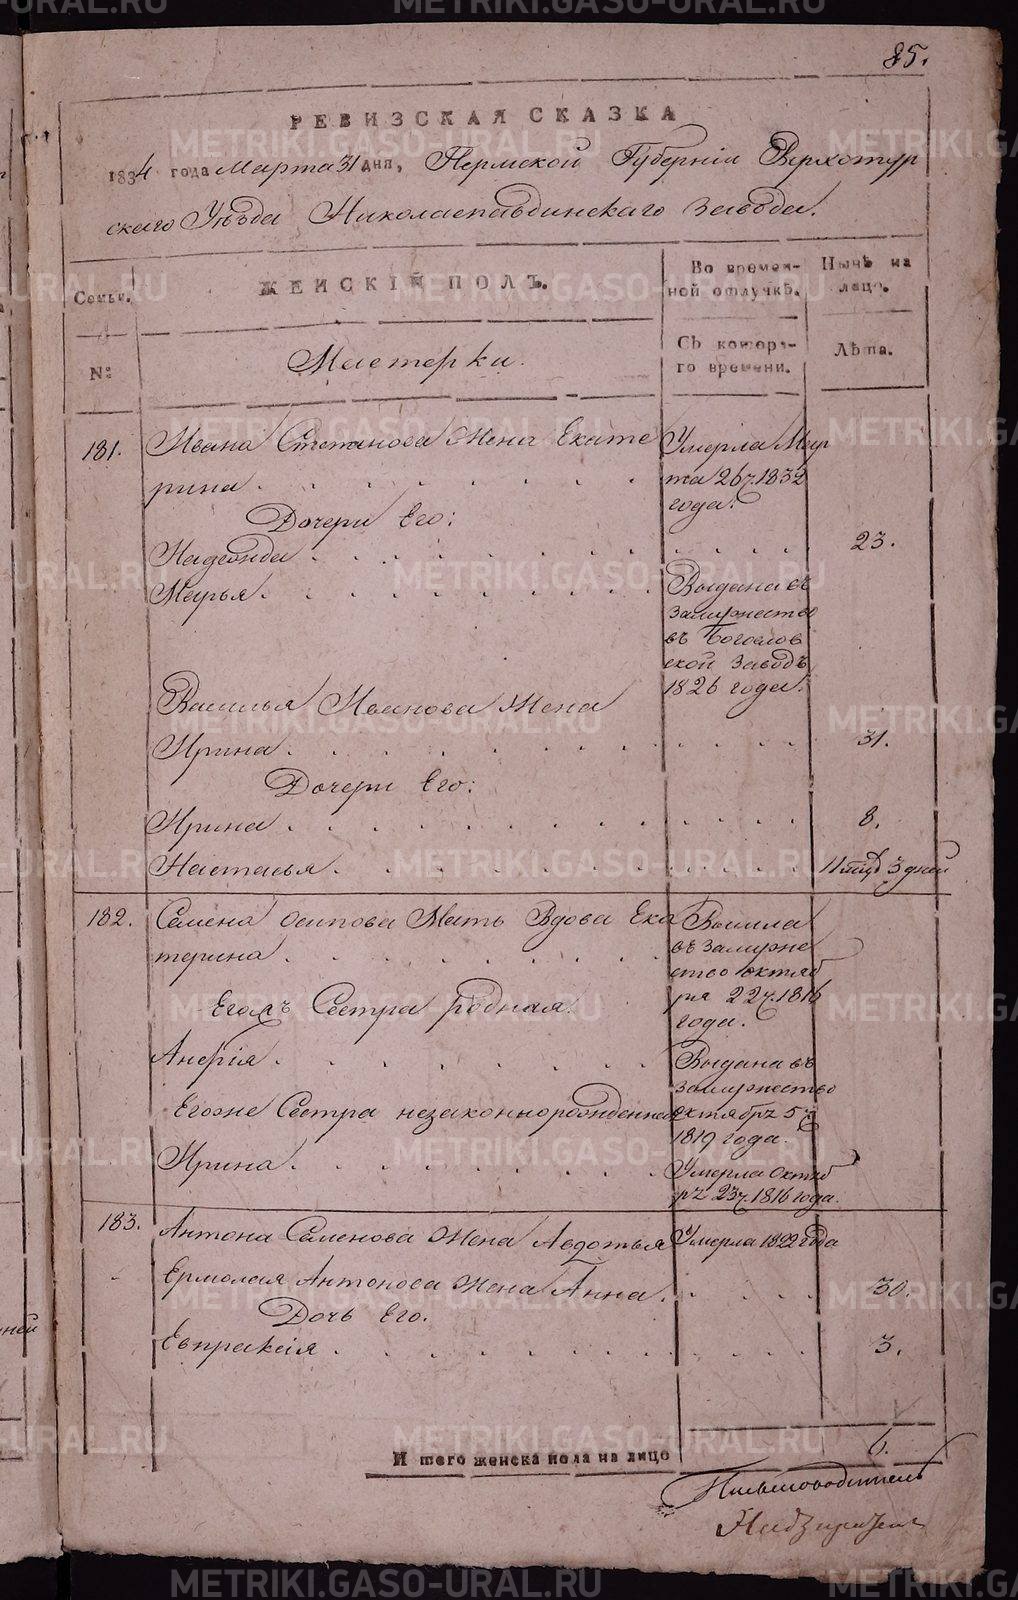 85.
РЕВИЗСКАЯ СКАЗКА
1834 года Марта 31 дня, Пермской Губерніи Верхотур
скаго Уѣзда Николаепавдинскаго завода.
Семьи.
ЖЕНСКІЙ ПОЛЪ.
Во времен-
ной отлучкѣ.
Нынѣ на
лицо.
№
Мастерки.
Съ котора-
го времени.
Лѣта.
181. Ивана Степанова Жена Екате
рина
Умерла Мар
та 26 ч. 1832
года.
Дочери Его:
Надежда 23.
Марья
Выдана въ
замужество
въ Богослов
ской заводъ
1826 года.
Василья Иванова Жена
Ирина 31.
Дочери Его:
Ирина 8.
Настасья 3 дней
182. Семена Осипова Мать Вдова Ека
терина
Вышла
въ замуже
ство октяб
ря 22 ч. 1816
года.
Сестра родная.
Выдана въ
замужество
октября 5 ч
1819 года.
Егоже Сестра незаконнорожденная
Ирина
Умерла октяб
ря 23 ч. 1816 года.
183. Антона Семенова Жена Авдотья Умерла 1822 года
Ермолая Антонова Жена Анна. 30.
Дочь Его.
Евпраксія 3.
И того женска пола на лицо 6.
Письмоводитель
METRIKI.GASO-URAL.RU